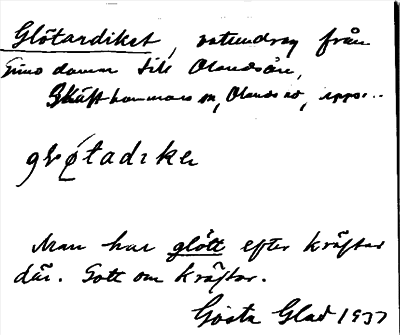 Glötardiket, vattendrag från
Gimo damm till Olandsån,
Skäfthammars sn, Olands hd, Uppl.
gløtadiker
Man har glött efter kräftor
där. Gott om kräftor.
Gösta Glad 1937